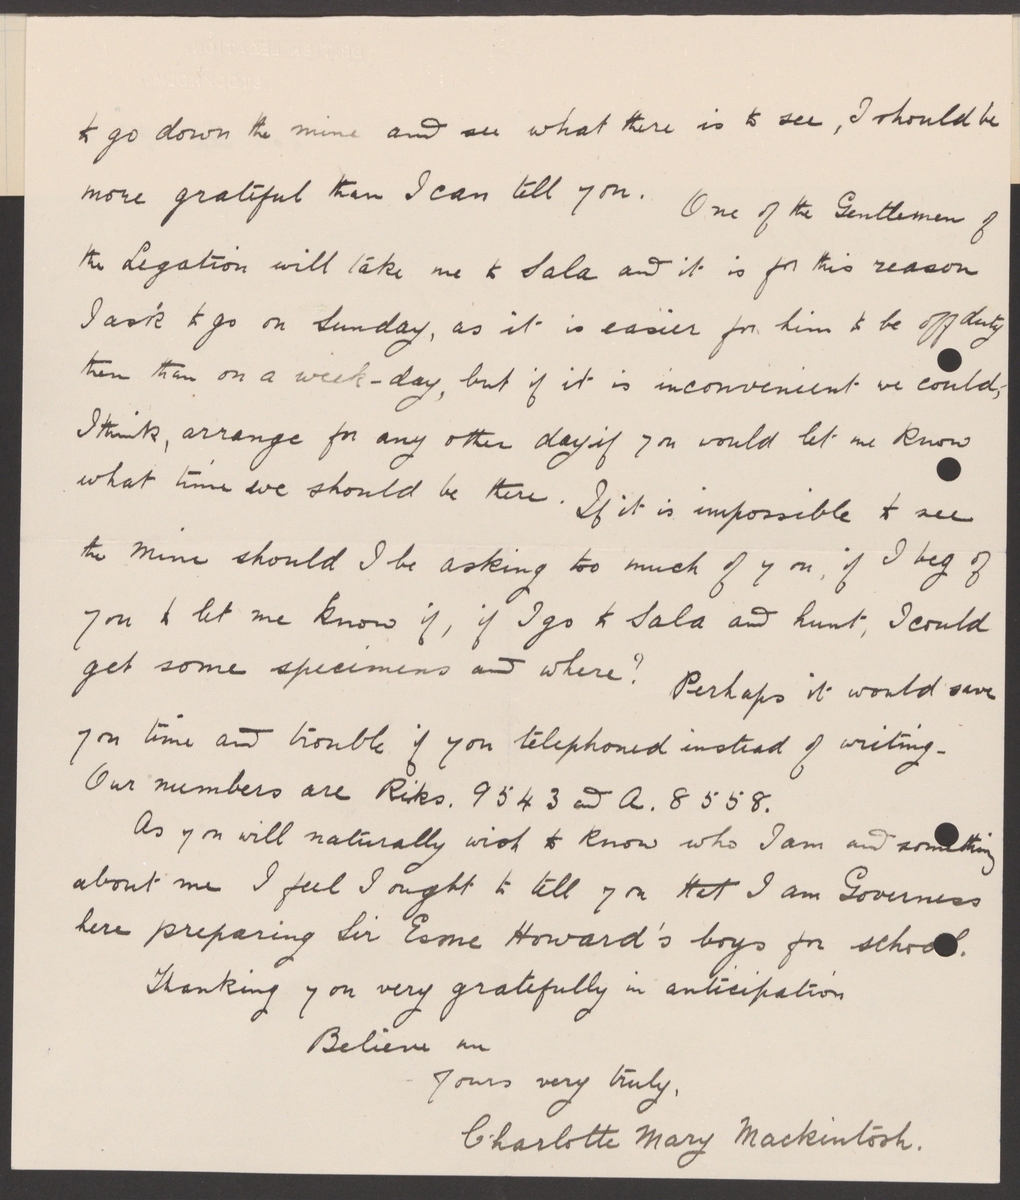 to go down the mine and see what there is to see, I should be
more grateful than I can tell you. One of the Gentlemen of
the Legation will take me to Sala and it is for this reason
I ask to go on Sunday, as it is easier for him to be off duty
then than on a week-day, but if it is inconvenient we could,
I think, arrange for any other day if you would let me know
what time we should be there. If it is impossible to see
the mine should I be asking too much of you, if I beg of
you to let me know if, if I go to Sala and hunt, I could
get some specimens and where? Perhaps it would save
you time and trouble if you telephoned instead of writing-
Our numbers are Riks. 9543 and A. 8558.
As you will naturally wish to know who I am and something
about me I feel I ought to tell you that I am Governess
here preparing Sir Esme Howard's boys for school.
Thanking you very gratefully in anticipation
Believe me
Yours very truly,
Charlotte Mary Mackintosh.